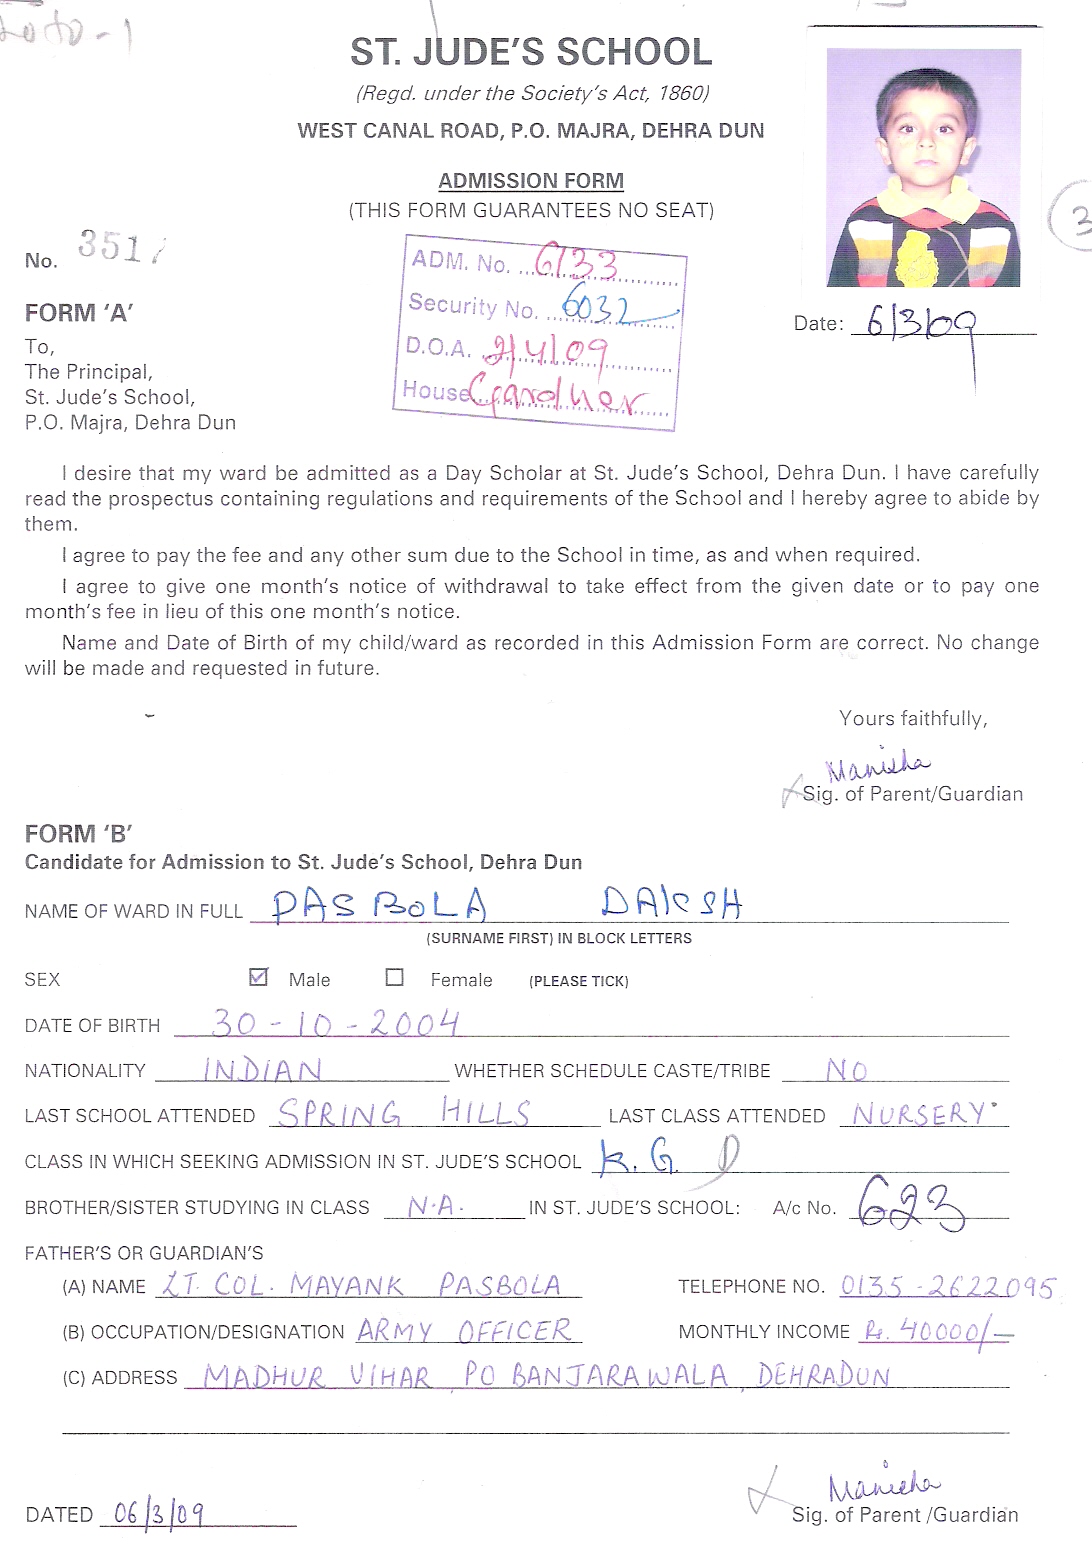 ST. JUDE'S SCHOOL
(Regd. under the Society's Act, 1860)
WEST CANAL ROAD, P.O. MAJRA, DEHRA DUN
ADMISSION FORM
(THIS FORM GUARANTEES NO SEAT)
No. 351
ADM. No. 6133
Security No. 6032
D.O.A. 2/4/09
House Gardner
3
Date: 6/3/09
FORM 'A'
To,
The Principal,
St. Jude's School,
P.O. Majra, Dehra Dun
I desire that my ward be admitted as a Day Scholar at St. Jude's School, Dehra Dun. I have carefully
read the prospectus containing regulations and requirements of the School and I hereby agree to abide by
them.
I agree to pay the fee and any other sum due to the School in time, as and when required.
I agree to give one month's notice of withdrawal to take effect from the given date or to pay one
month's fee in lieu of this one month's notice.
Name and Date of Birth of my child/ward as recorded in this Admission Form are correct. No change
will be made and requested in future.
Yours faithfully,
Manisha
Sig. of Parent/Guardian
FORM 'B'
Candidate for Admission to St. Jude's School, Dehra Dun
NAME OF WARD IN FULL PASBOLA DAKSH
(SURNAME FIRST) IN BLOCK LETTERS
SEX Male Female (PLEASE TICK)
DATE OF BIRTH 30-10-2004
NATIONALITY INDIAN WHETHER SCHEDULE CASTE/TRIBE NO
LAST SCHOOL ATTENDED SPRING HILLS LAST CLASS ATTENDED NURSERY
CLASS IN WHICH SEEKING ADMISSION IN ST. JUDE'S SCHOOL K.G.
BROTHER/SISTER STUDYING IN CLASS N.A. IN ST. JUDE'S SCHOOL: A/c No. 623
FATHER'S OR GUARDIAN'S
(A) NAME LT. COL. MAYANK PASBOLA TELEPHONE NO. 0135-2622095
(B) OCCUPATION/DESIGNATION ARMY OFFICER MONTHLY INCOME Rs. 40000/-
(C) ADDRESS MADHUR VIHAR PO BANJARAWALA, DEHRADUN
Manisha
DATED 06/3/09 Sig. of Parent /Guardian